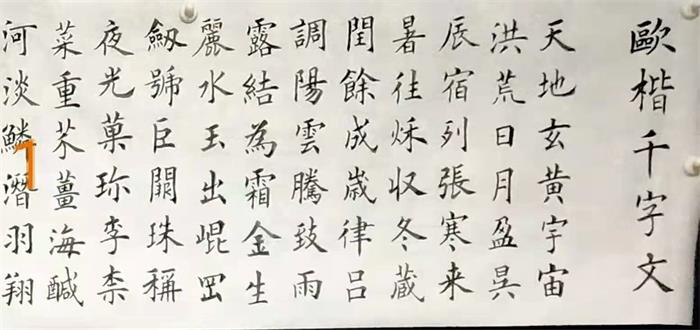 歐楷千字文
天地玄黃宇宙
洪荒日月盈昃
辰宿列張寒来
暑往秌收冬蔵
閏餘成歲律吕
調陽雲騰致雨
露結為霜金生
麗水玉出崐罡
劒號巨闕珠稱
夜光菓珎李柰
菜重芥薑海鹹
河淡鱗潛羽翔
1